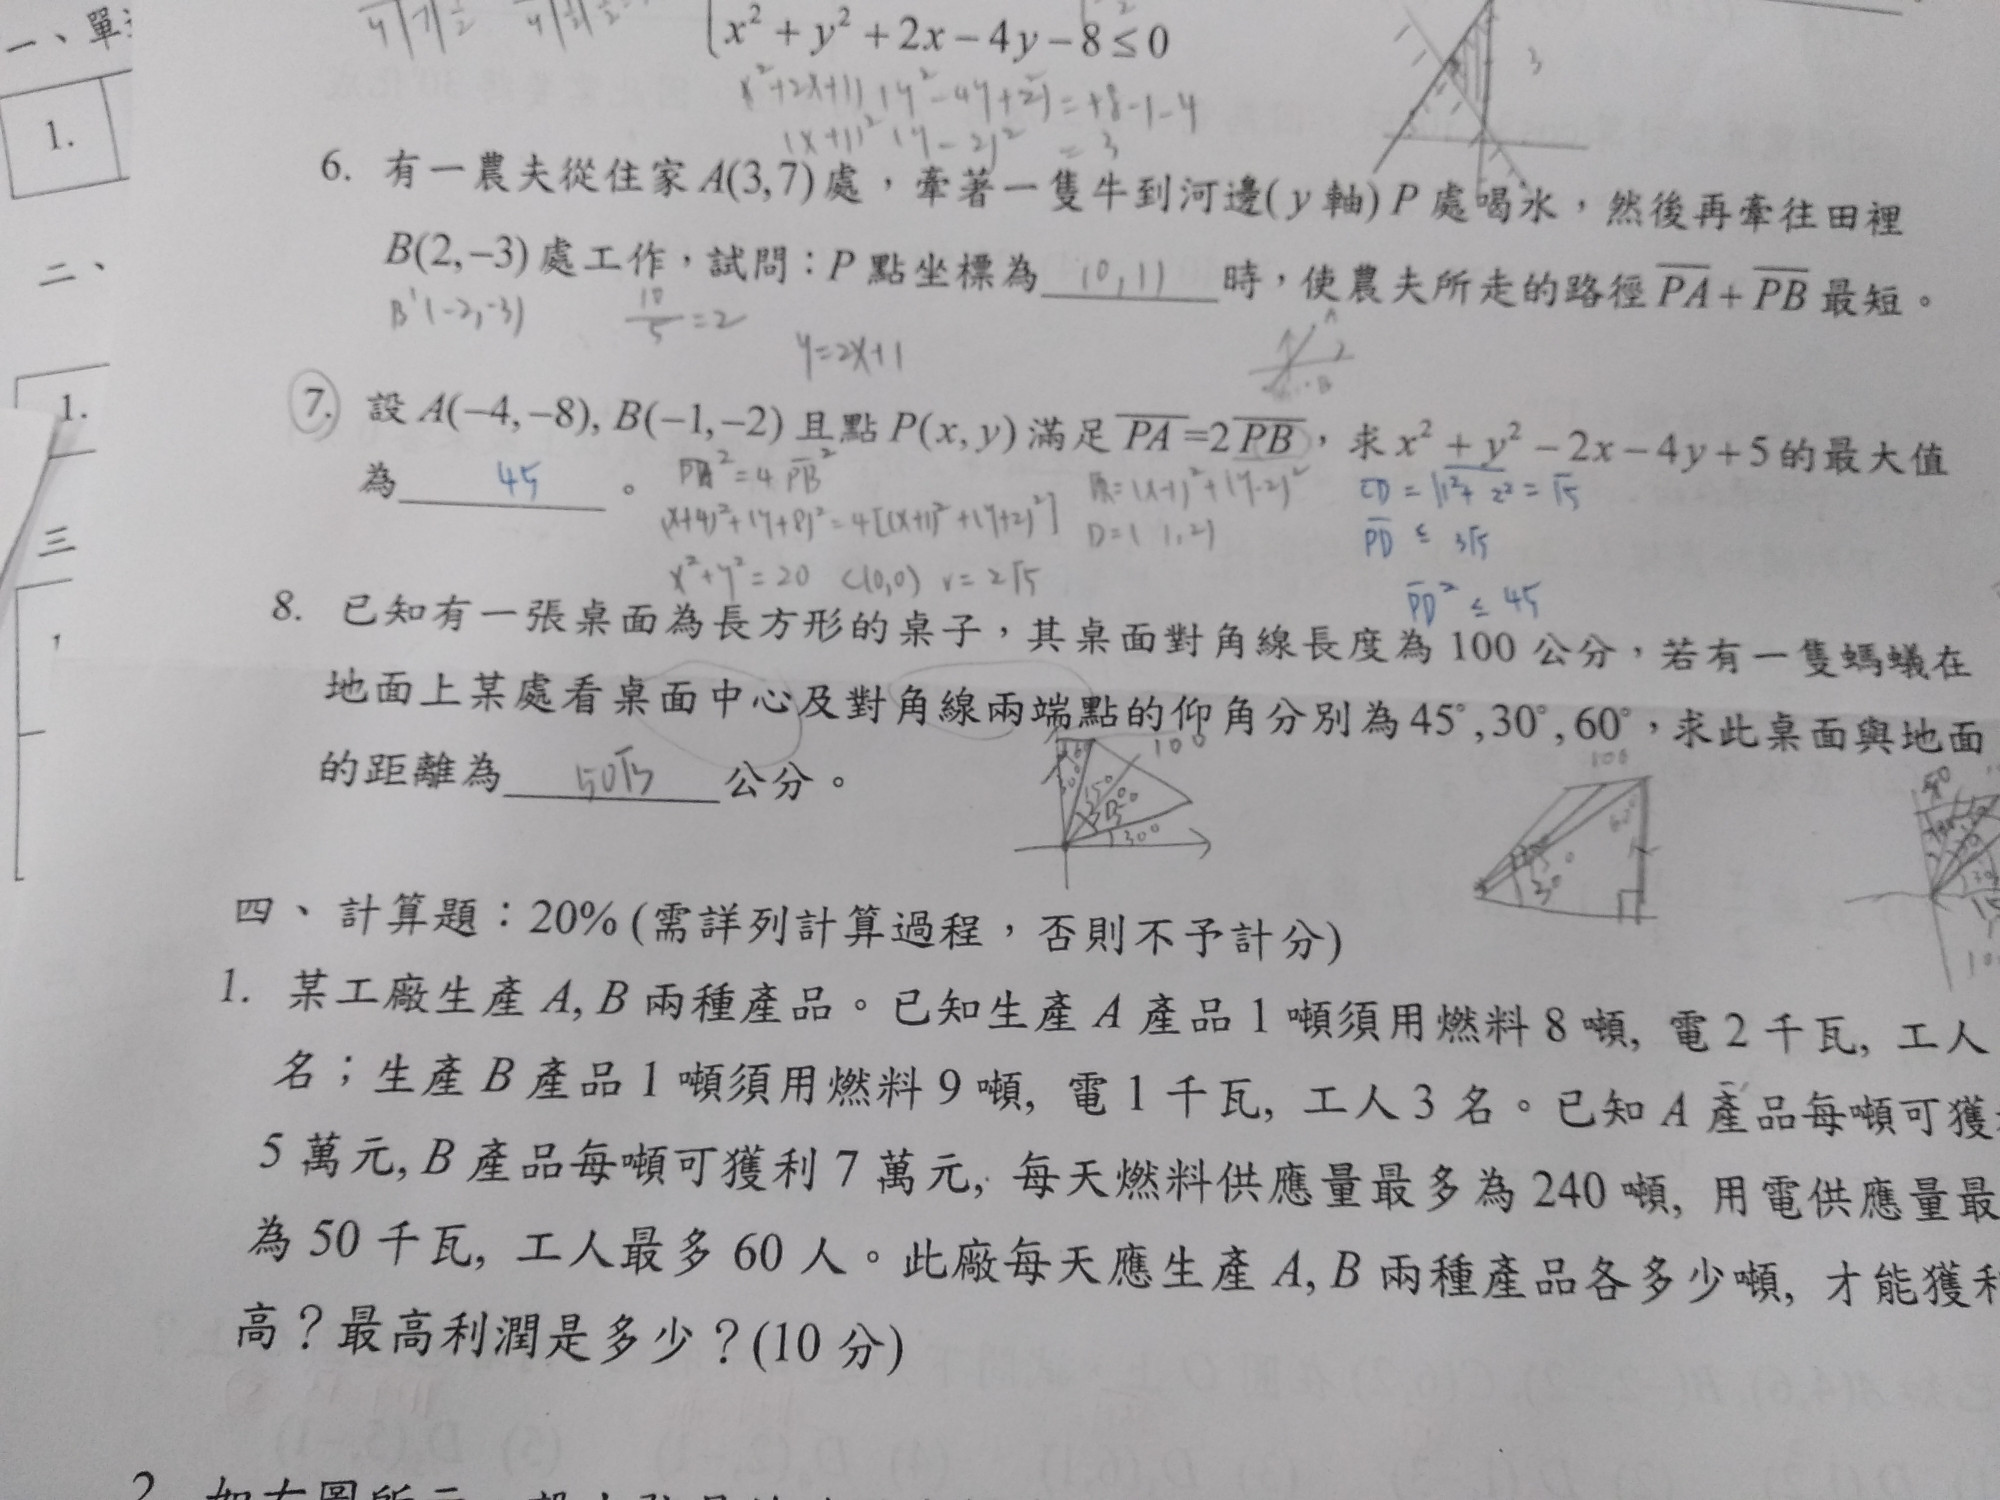 一、單
1.
二、
1.
三
x² + y² + 2x − 4y − 8 ≤ 0
= +8-1-4
= 3
6. 有一農夫從住家 A(3,7) 處，牽著一隻牛到河邊( y 軸) P 處喝水，然後再牽往田裡
B(2,−3) 處工作，試問：P 點坐標為 (0,1) 時，使農夫所走的路徑 P̅A̅ + P̅B̅ 最短。
B'(-2,-3) 10/5 = 2
y=2x+1
7. 設 A(−4,−8), B(−1,−2) 且點 P(x, y) 滿足 P̅A̅ =2 P̅B̅，求 x² + y² − 2x − 4y + 5 的最大值
為 45 。
P̅A̅² = 4 P̅B̅²
(x+4)²+(y+8)²=4[(x+1)²+(y+2)²]
x²+y²=20 C(0,0) r=2√5
D=(1,2)
C̅D̅ = √1²+2² = √5
P̅D̅ ≤ 3√5
P̅D̅² ≤ 45
8. 已知有一張桌面為長方形的桌子，其桌面對角線長度為 100 公分，若有一隻螞蟻在
地面上某處看桌面中心及對角線兩端點的仰角分別為 45°, 30°, 60°，求此桌面與地面
的距離為 50√3 公分。
100
30°
100
四、計算題：20% (需詳列計算過程，否則不予計分)
1. 某工廠生產 A, B 兩種產品。已知生產 A 產品 1 噸須用燃料 8 噸, 電 2 千瓦, 工人
名；生產 B 產品 1 噸須用燃料 9 噸, 電 1 千瓦, 工人 3 名。已知 A 產品每噸可獲
5 萬元, B 產品每噸可獲利 7 萬元, 每天燃料供應量最多為 240 噸, 用電供應量最
為 50 千瓦, 工人最多 60 人。此廠每天應生產 A, B 兩種產品各多少噸, 才能獲利
高？最高利潤是多少？(10 分)